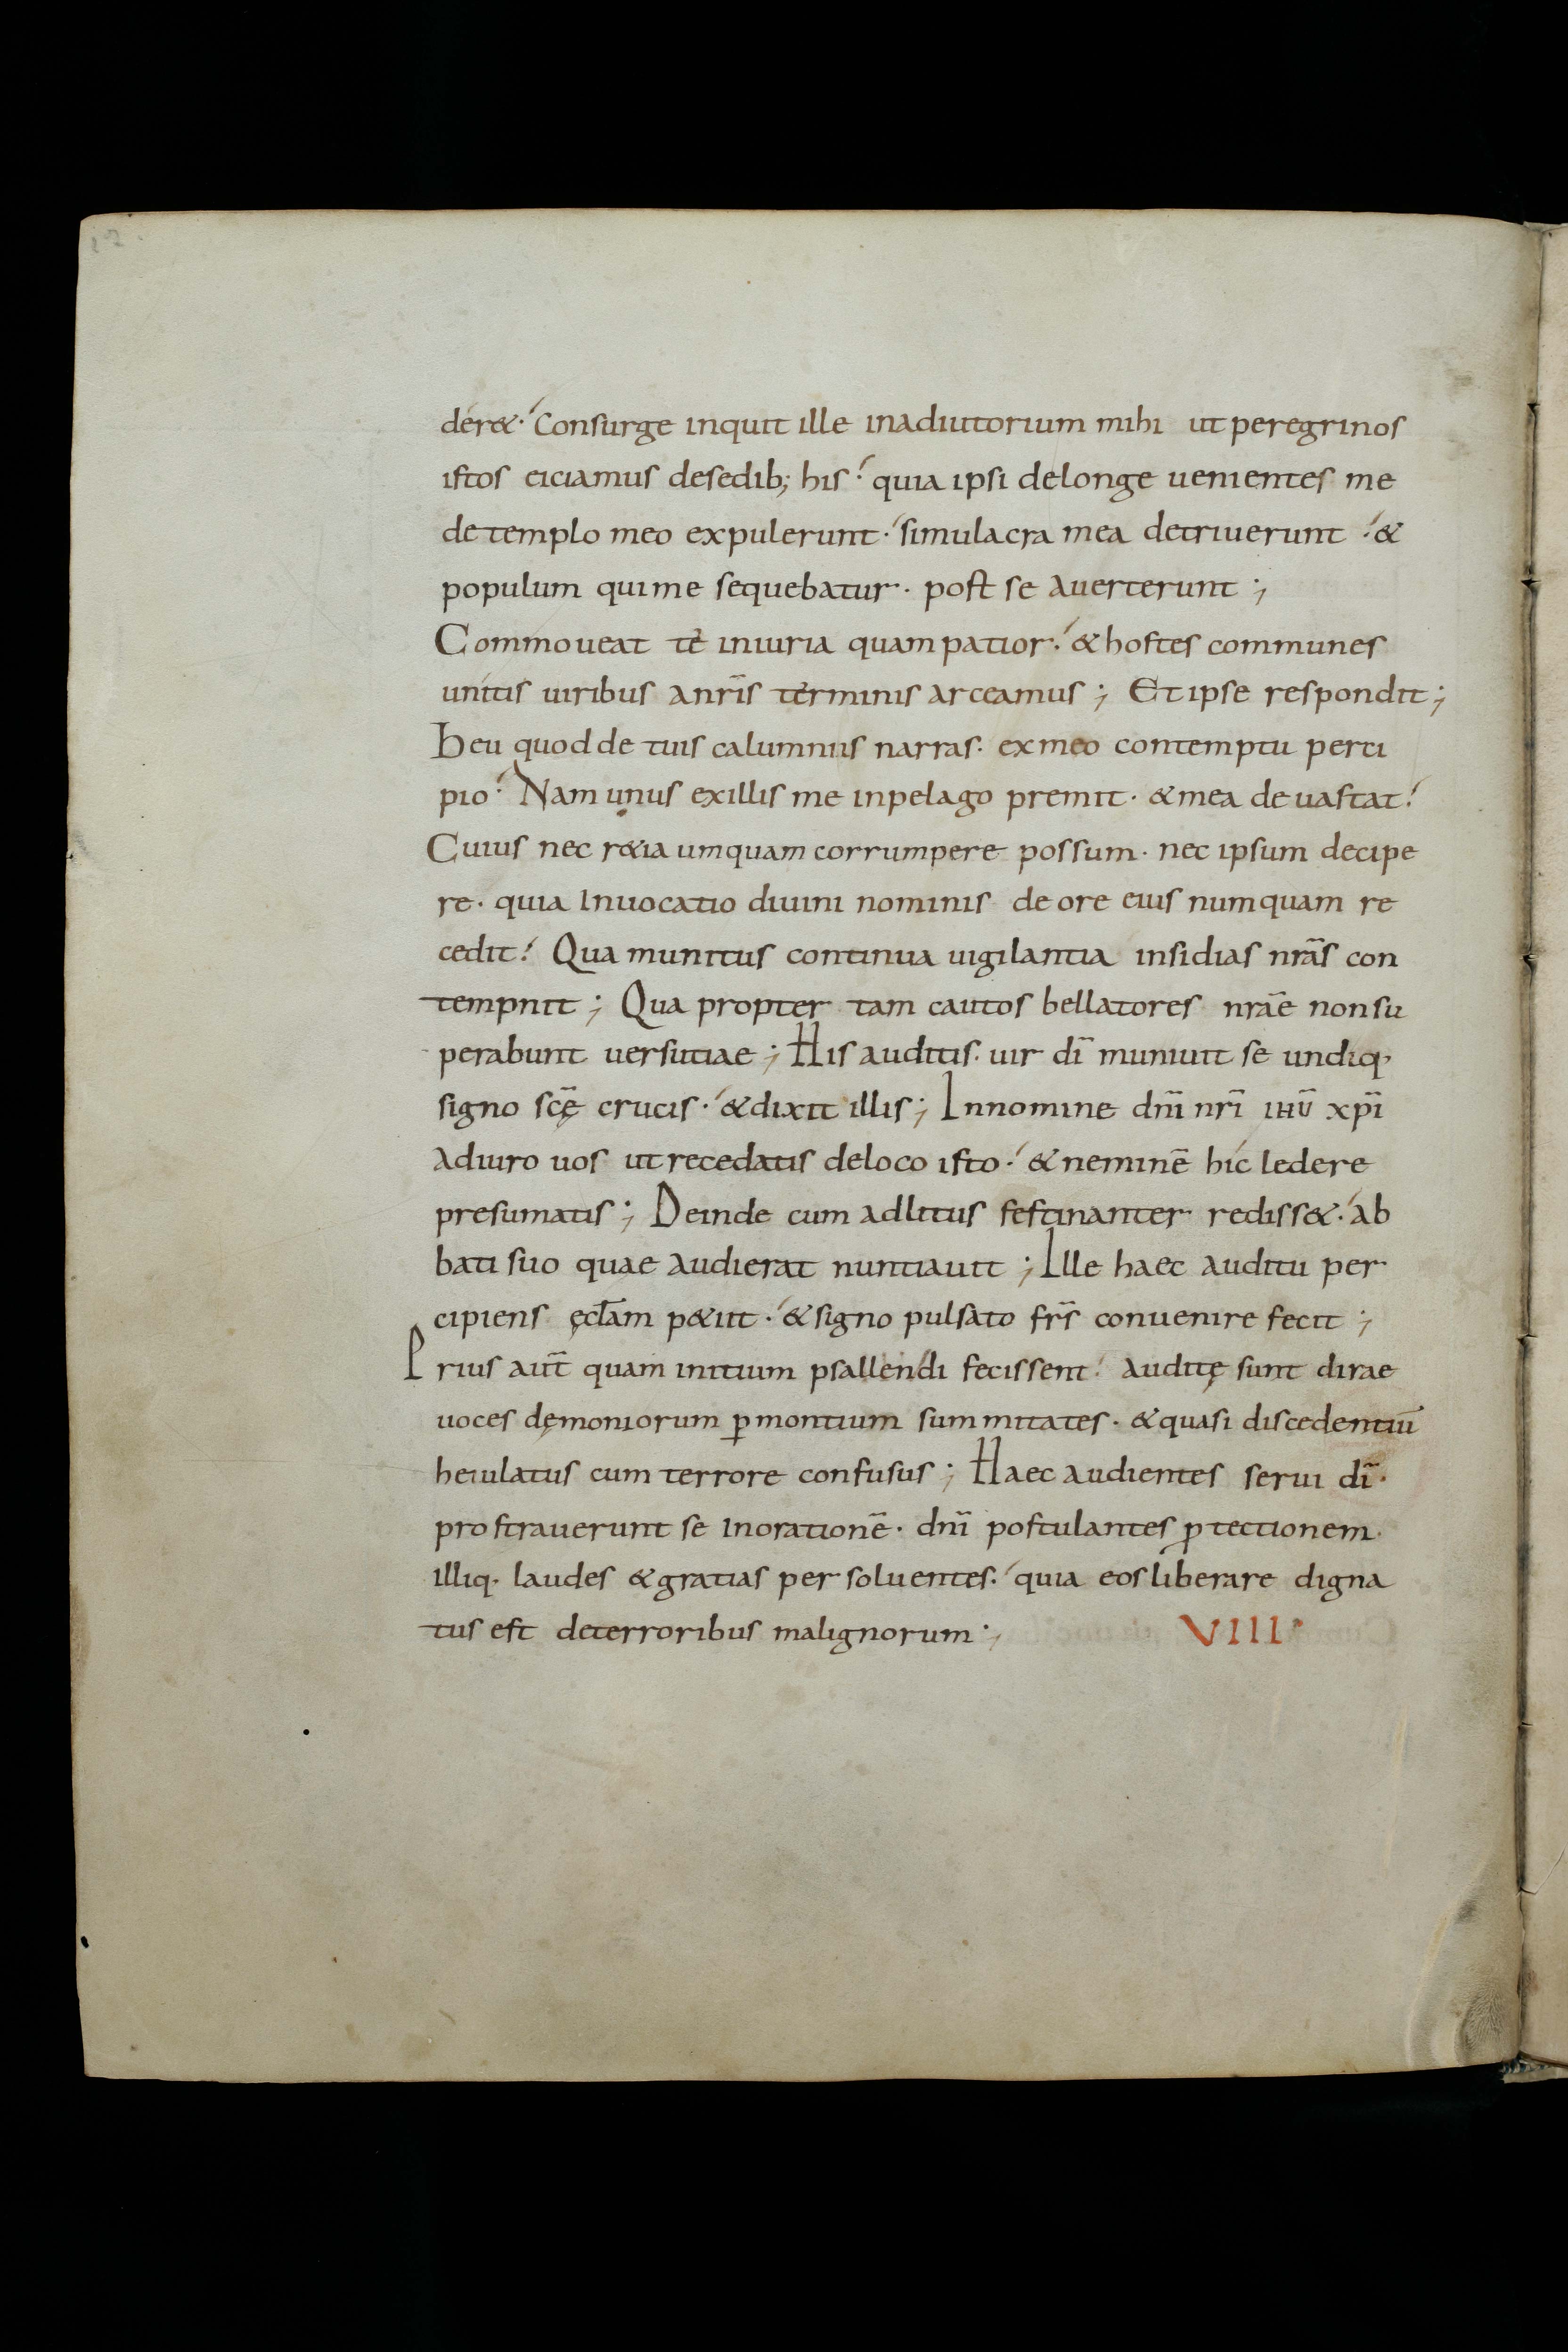 der&. Consurge inquit ille inadiutorium mihi ut peregrinos
istos eiciamus desedib; his. quia ipsi delonge uenientes me
de templo meo expulerunt. simulacra mea detriuerunt. &
populum qui me sequebatur. post se auerterunt;
Commoueat te iniuria quam patior. & hostes communes
unitis uiribus anr̄is terminis arceamus; Et ipse respondit;
Heu quod de tuis calumniis narras. ex meo contemptu perci
pio. Nam unus exillis me inpelago premit. & mea deuastat.
Cuius nec r&ia umquam corrumpere possum. nec ipsum decipe
re. quia Inuocatio diuini nominis de ore eius numquam re
cedit. Qua munitus continua uigilantia insidias nr̄as con
tempnit; Qua propter tam cautos bellatores nr̄ae non su
perabunt uersutiae; His auditis. uir dī muniuit se undiq.
signo sc̄ę crucis. & dixit illis; Innomine dn̄i nr̄i ihū xp̄i
Adiuro uos ut recedatis deloco isto. & neminē hic ledere
presumatis; Deinde cum adlitus festinanter rediss&. ab
bati suo quae audierat nuntiauit; Ille haec auditu per
cipiens ęcl̄am p&iit. & signo pulsato fr̄s conuenire fecit;
Prius aut̄ quam initium psallendi fecissent. auditę sunt dirae
uoces dęmoniorum ꝑ montium summitates. & quasi discedentiū
heiulatus cum terrore confusus; Haec audientes serui dī.
prostrauerunt se Inorationē. dn̄i postulantes ꝓtectionem.
illiq. laudes & gratias persoluentes. quia eos liberare digna
tus est deterroribus malignorum; VIII.